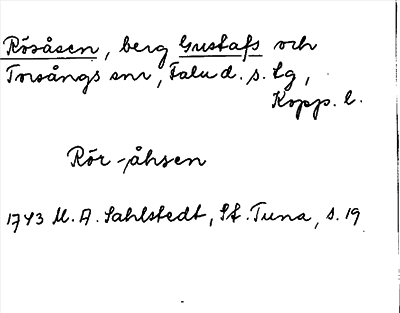 Rösåsen, berg Gustafs och
Torsångs snr, Falu d. s. tg,
Kopp. l.
Rör-åhsen
1743 M. A. Sahlstedt, St. Tuna, s. 19